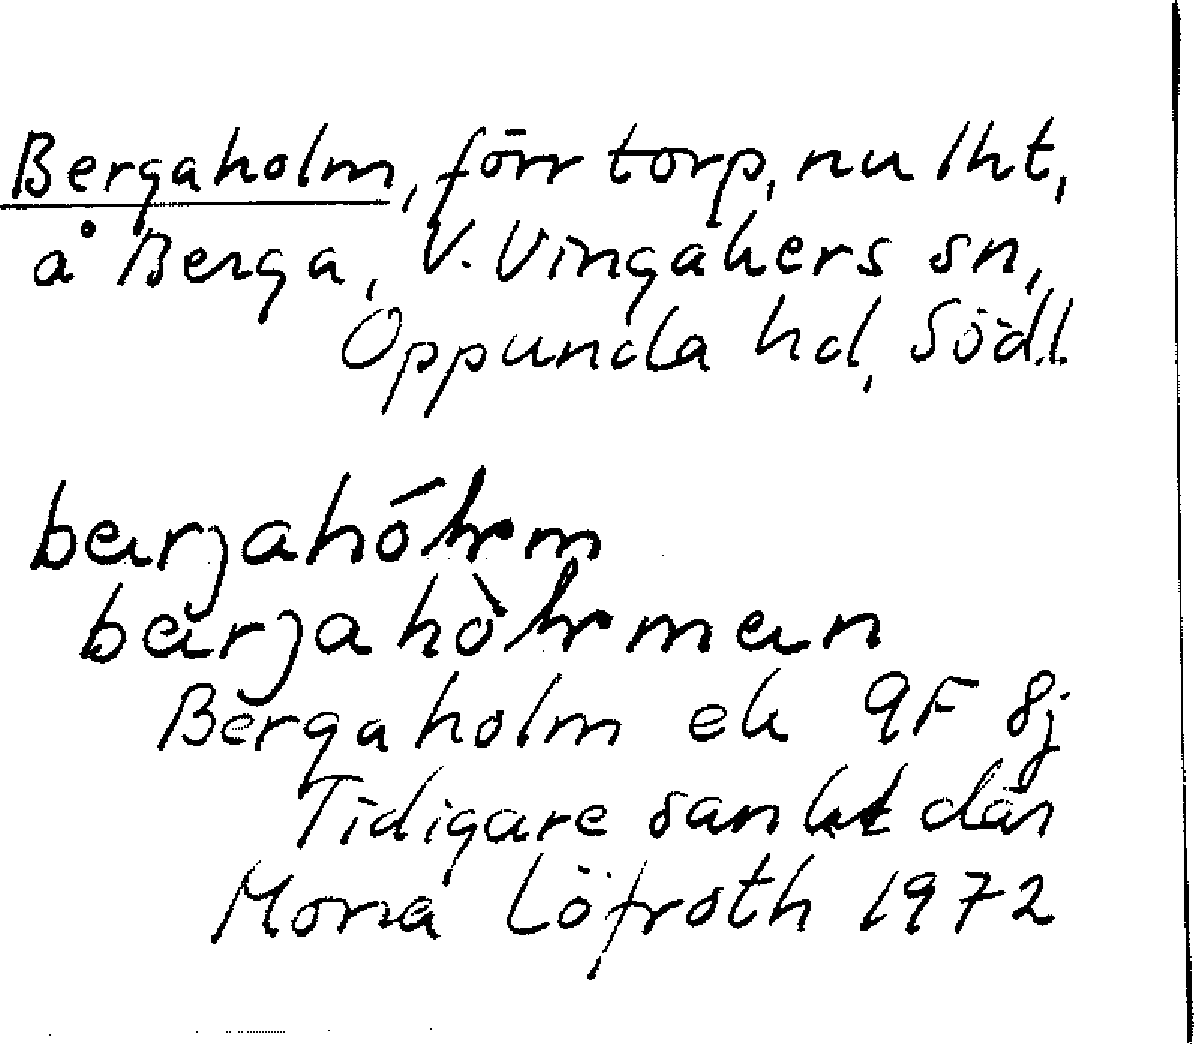 Bergaholm, förr torp, nu lht,
å Berga, V. Vingåkers sn,
Oppunda hd, Södl.
bärjahólm
bärjahòlmen
Bergaholm ek 9F 8j
Tidigare sankt där
Mona Löfroth 1972